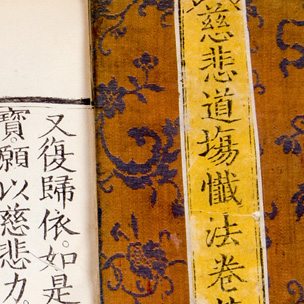 慈悲道場懺法卷
又復歸依。如是
寶願以慈悲力。